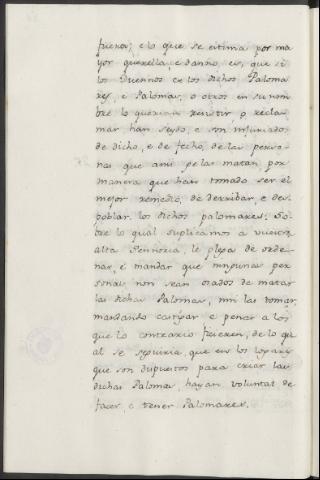 fuera; e lo que se estima por ma
yor querella, e danno, es, que si
los Duennos de los dichos Paloma
res, e Palomas, o otros en su nom
bre lo querian resistir, o recla
mar han seydo, e son injuriados
de dicho, e de fecho, de las perso
nas que ansi gelas matan, por
manera que han tomado ser el
mejor remedio, de derribar, e des
poblar los dichos palomares. So
bre lo qual suplicamos a vuestra
alta Sennoria, le plega de orde
nar, e mandar que ningunas per
sonas non sean osados de matar
las dichas Palomas, nin las tomar,
mandando castigar e penar a los
que lo contrario ficieren, de lo qu
al se seguiria, que en los logares
que son dispuestos para criar las
dichas Palomas, hayan voluntat de
facer, e tener Palomares.